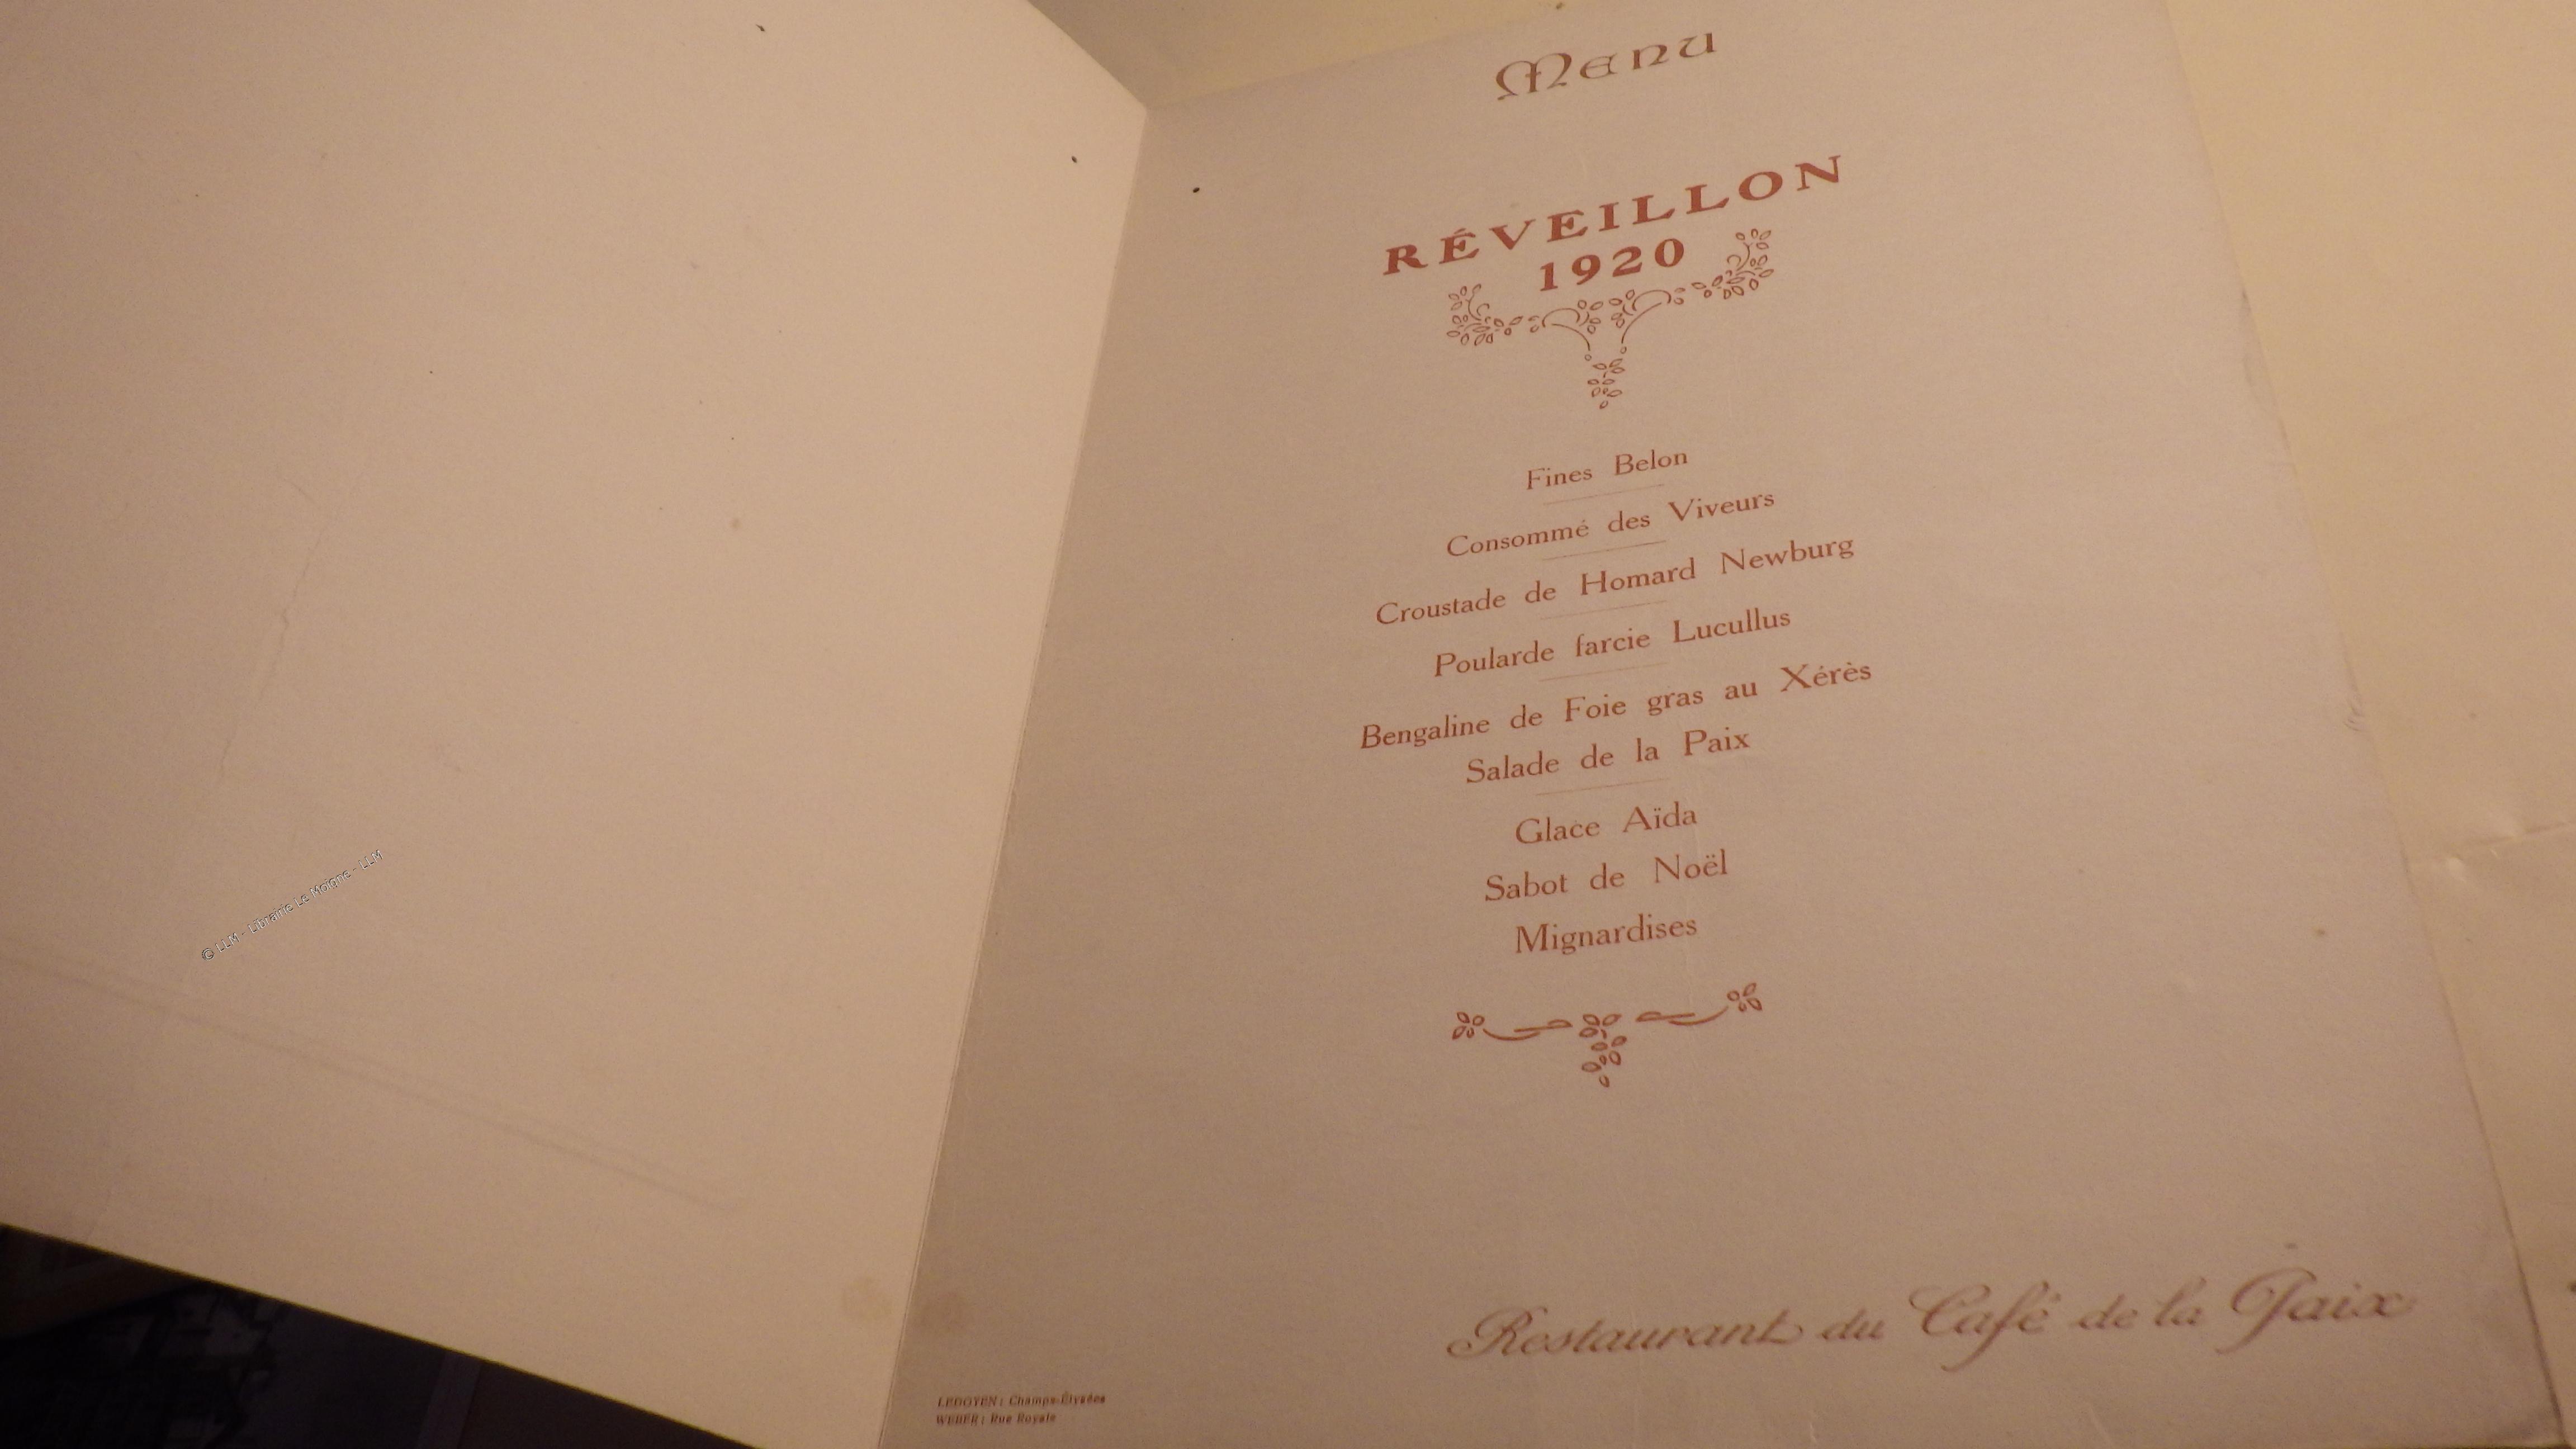 Menu
RÉVEILLON
1920
Fines Belon
Consommé des Viveurs
Croustade de Homard Newburg
Poularde farcie Lucullus
Bengaline de Foie gras au Xérès
Salade de la Paix
Glace Aïda
Sabot de Noël
Mignardises
Restaurant du Café de la Paix
LEDOYEN : Champs-Élysées
WEBER : Rue Royale
© LLM - Librairie Le Moigne - LLM